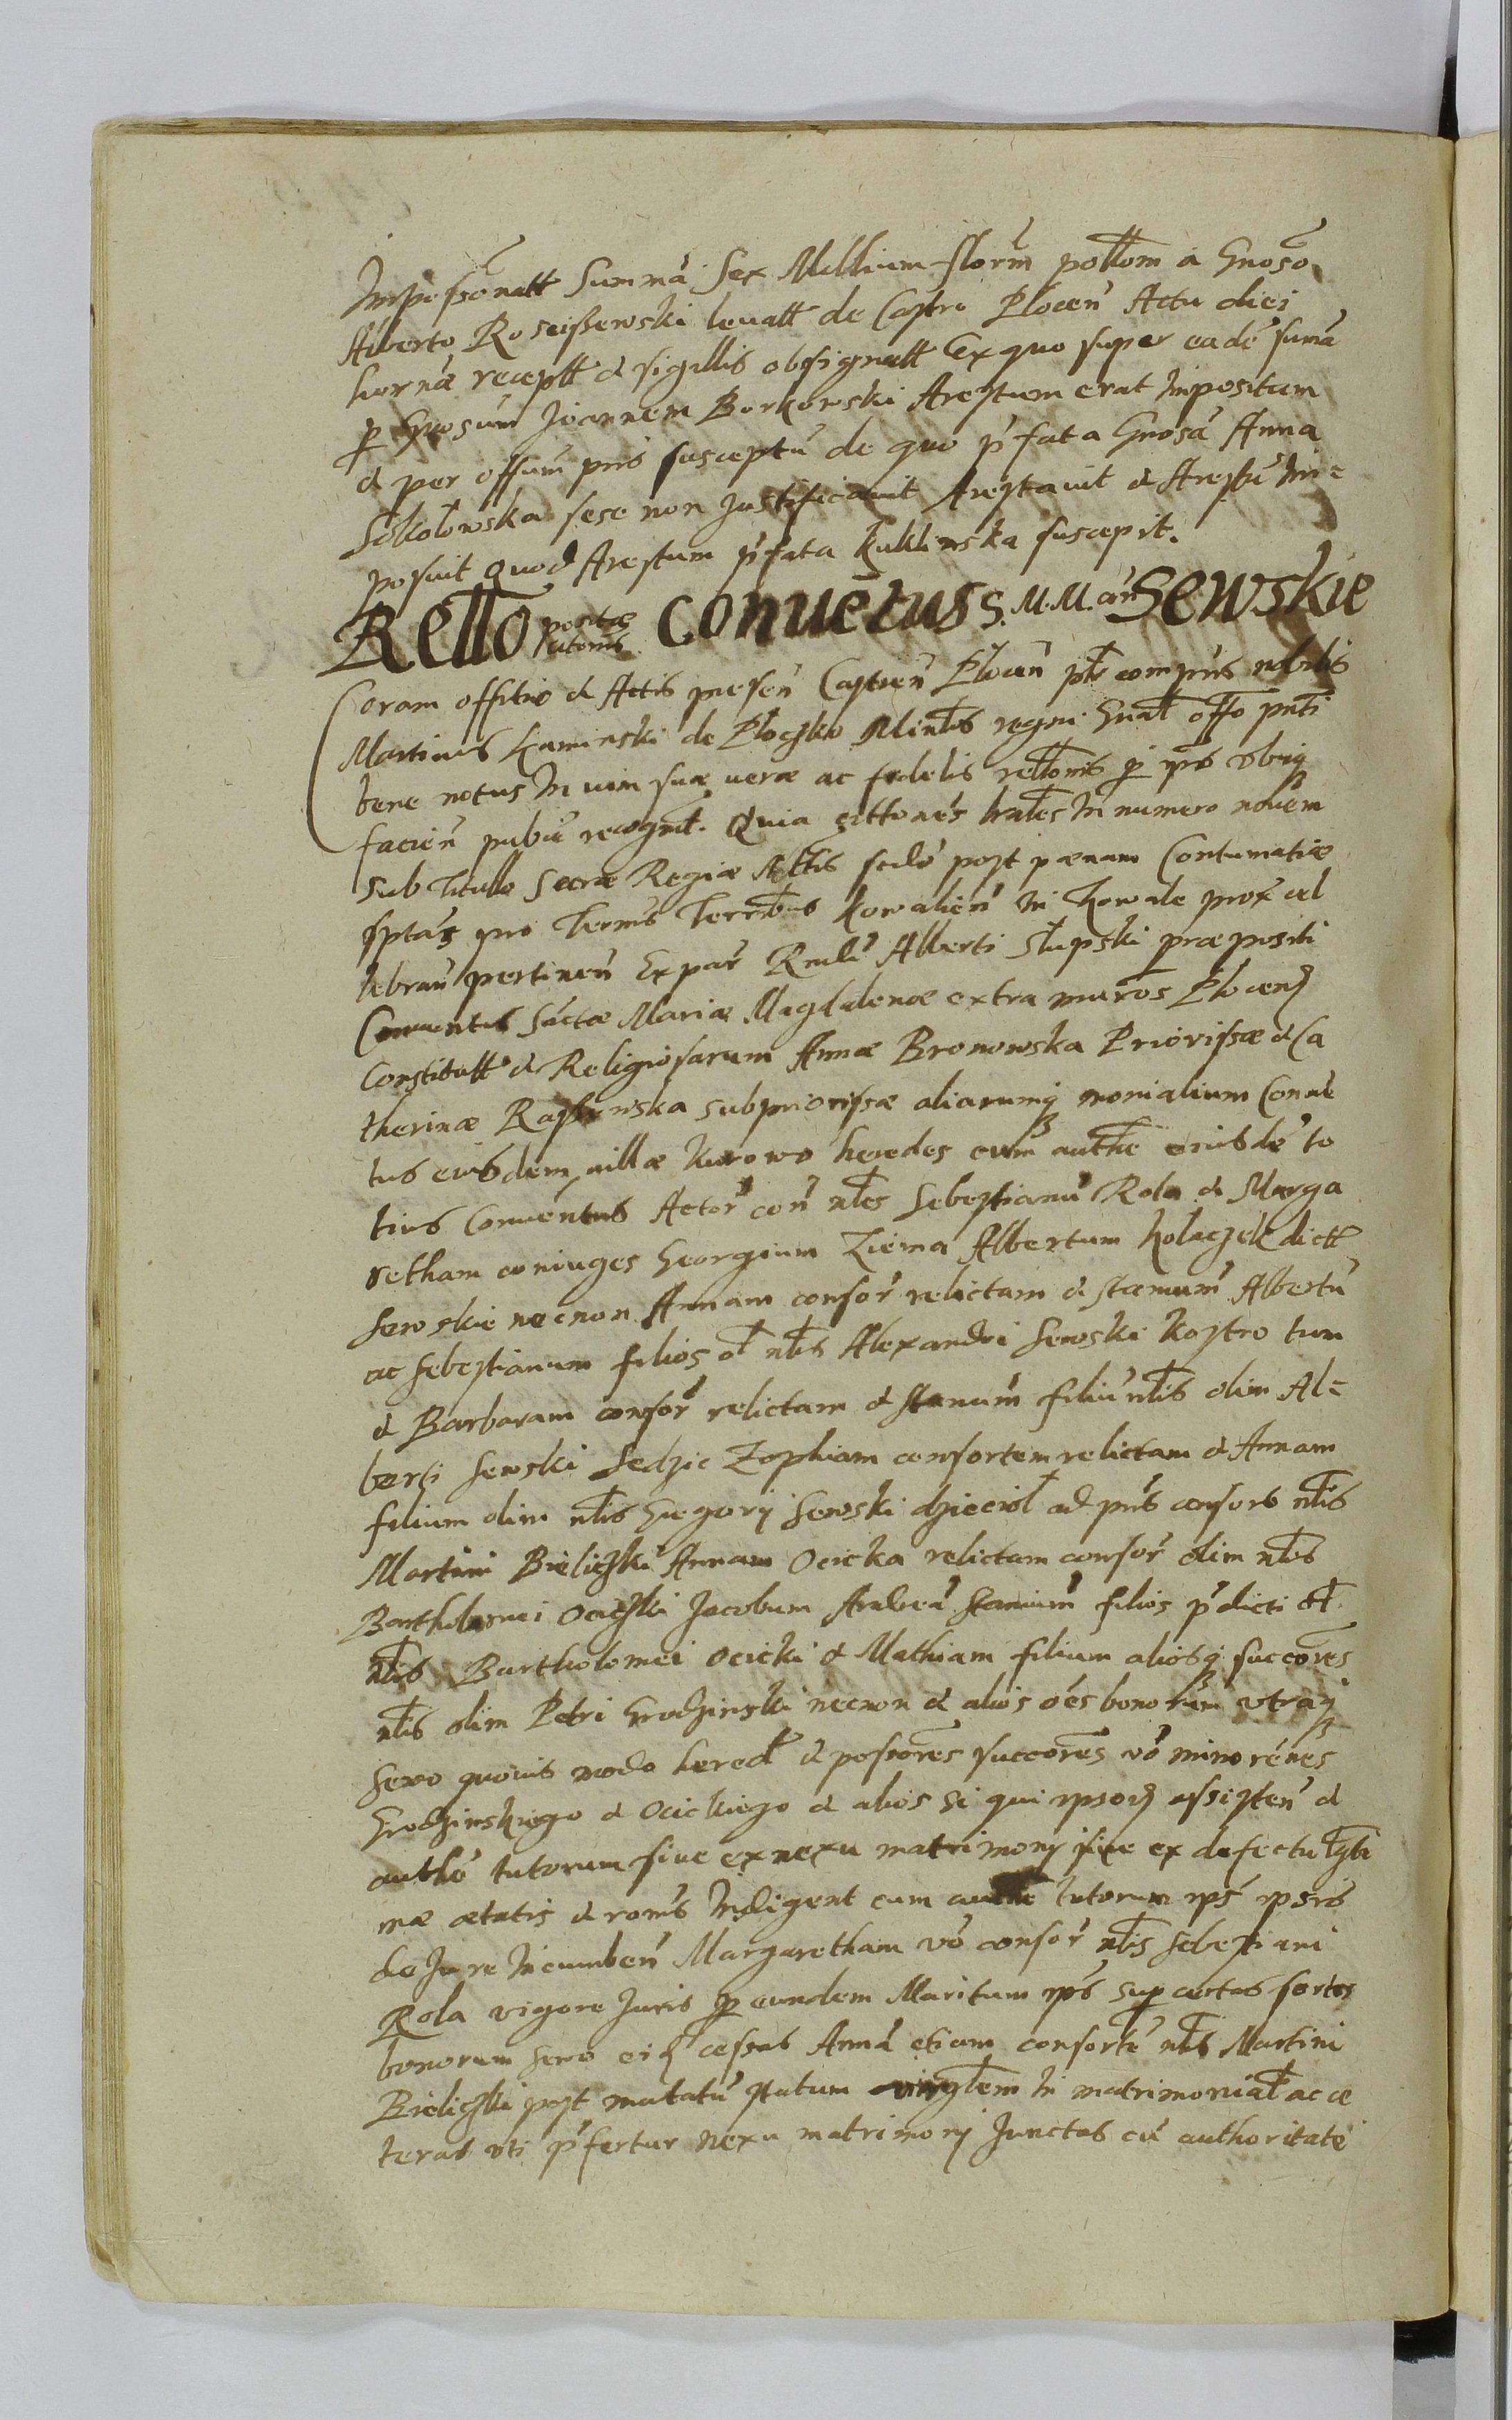 Impersonatt Summa Sex Millium flor̃m polłom à Gñoso
Alberto Rosciszewski levatt de Castro Plocen̄ Actu diei
hornæ receptt & sigillis obsignatt Ex quo super eadē sumã
p Gñosum Joannem Borkowski Arestum erat Impositum
& per offũm pñs susceptũ de quo p̃fata Gñosã Anna
Sokołowska sese non Justificavit Arestavit & Arestũ Im=
posuit quod Arestum p̃fata Kuklinska suscepit.
Rełło positæ Conuētus S. M. M. Sewskie
Coram offitio & Actis præsen̄ Castren̄ Plocen̄ plr comprñs nobilis
Martinus Kaminski de Ploczko Minłlis regni Gnał offo pnti
bene notus In vim suæ veræ ac fidelis rełłonis p ipm obviq
facien̄ publi recognit. Quia cittones brałes In numero novem
sub Titullo Sacræ Regiæ Mttis scilē post pænam Contumatiæ
sptas pro Termis Terrłbus Kowalien̄ in Kowale prox cel
lebran̄ pertinen̄ Ex par̃ Rndi Alberti Słupski præpositi
Conventus Sãctæ Mariæ Magdalenæ extra muros Plocen̄
Constitutt & Religiosarum Annæ Bronowska Priorissæ & Ca
therinæ Raszewska subpriorissæ aliarumq monialium Conve
tus eiusdem villæ Kurowo heredes cum authe eiusdē to
tius Conventus Actor̃ con̄ nłes Sebestianũ Rola & Marga
retham coniuges Georgium Ziema Albertum Kołaczek dictt
Sewskie necnon Annam consor̃ relictam & stanum Albertũ
ac Sebestianum filios ol nłis Alexandri Sewski Kostro tum
& Barbaram consor̃ relictam & stanum filiũ nłis olim Al=
berti Sewski Sedzic Zophiam consortem relictam & Annam
filium olim nłis Gregorij Sewski dzieciol ad pñs consors nłis
Martini Bieliczki Annam Ocicka relictam consor̃ olim nłis
Bartholomei Ociczki Jacobum Andreã Stanium filios p̃dicti ol
nłis Bartholomei Ocicki & Mathiam filium aliosq succores
nłis olim Petri Grodzinski necnon & alios oẽs bonorum vtraq
Sewo quovis modo hered & possores succores vō minorēnes
Grodzinskiego & Ocickiego & alios si qui ipsor̃ assisten̄ & 
autho tutorum sive ex nexu matrimonij sive ex defectu
mæ ætatis & ronis Indigent cum tutorum ips ipsis
de Jure Incumben̄ Margaretham vō consor̃ nłis Sebestiani
Rola vigore Juris p eundem Maritum ips sup certas sortes
bonorum Sewo eid cessas Annã etiam consortē nłis Martini
Bieliczki post mutatũ statum in matrimoniał ac cæ
teras vti p̃fertur nexu matrimonij Junctas cũ authoritate